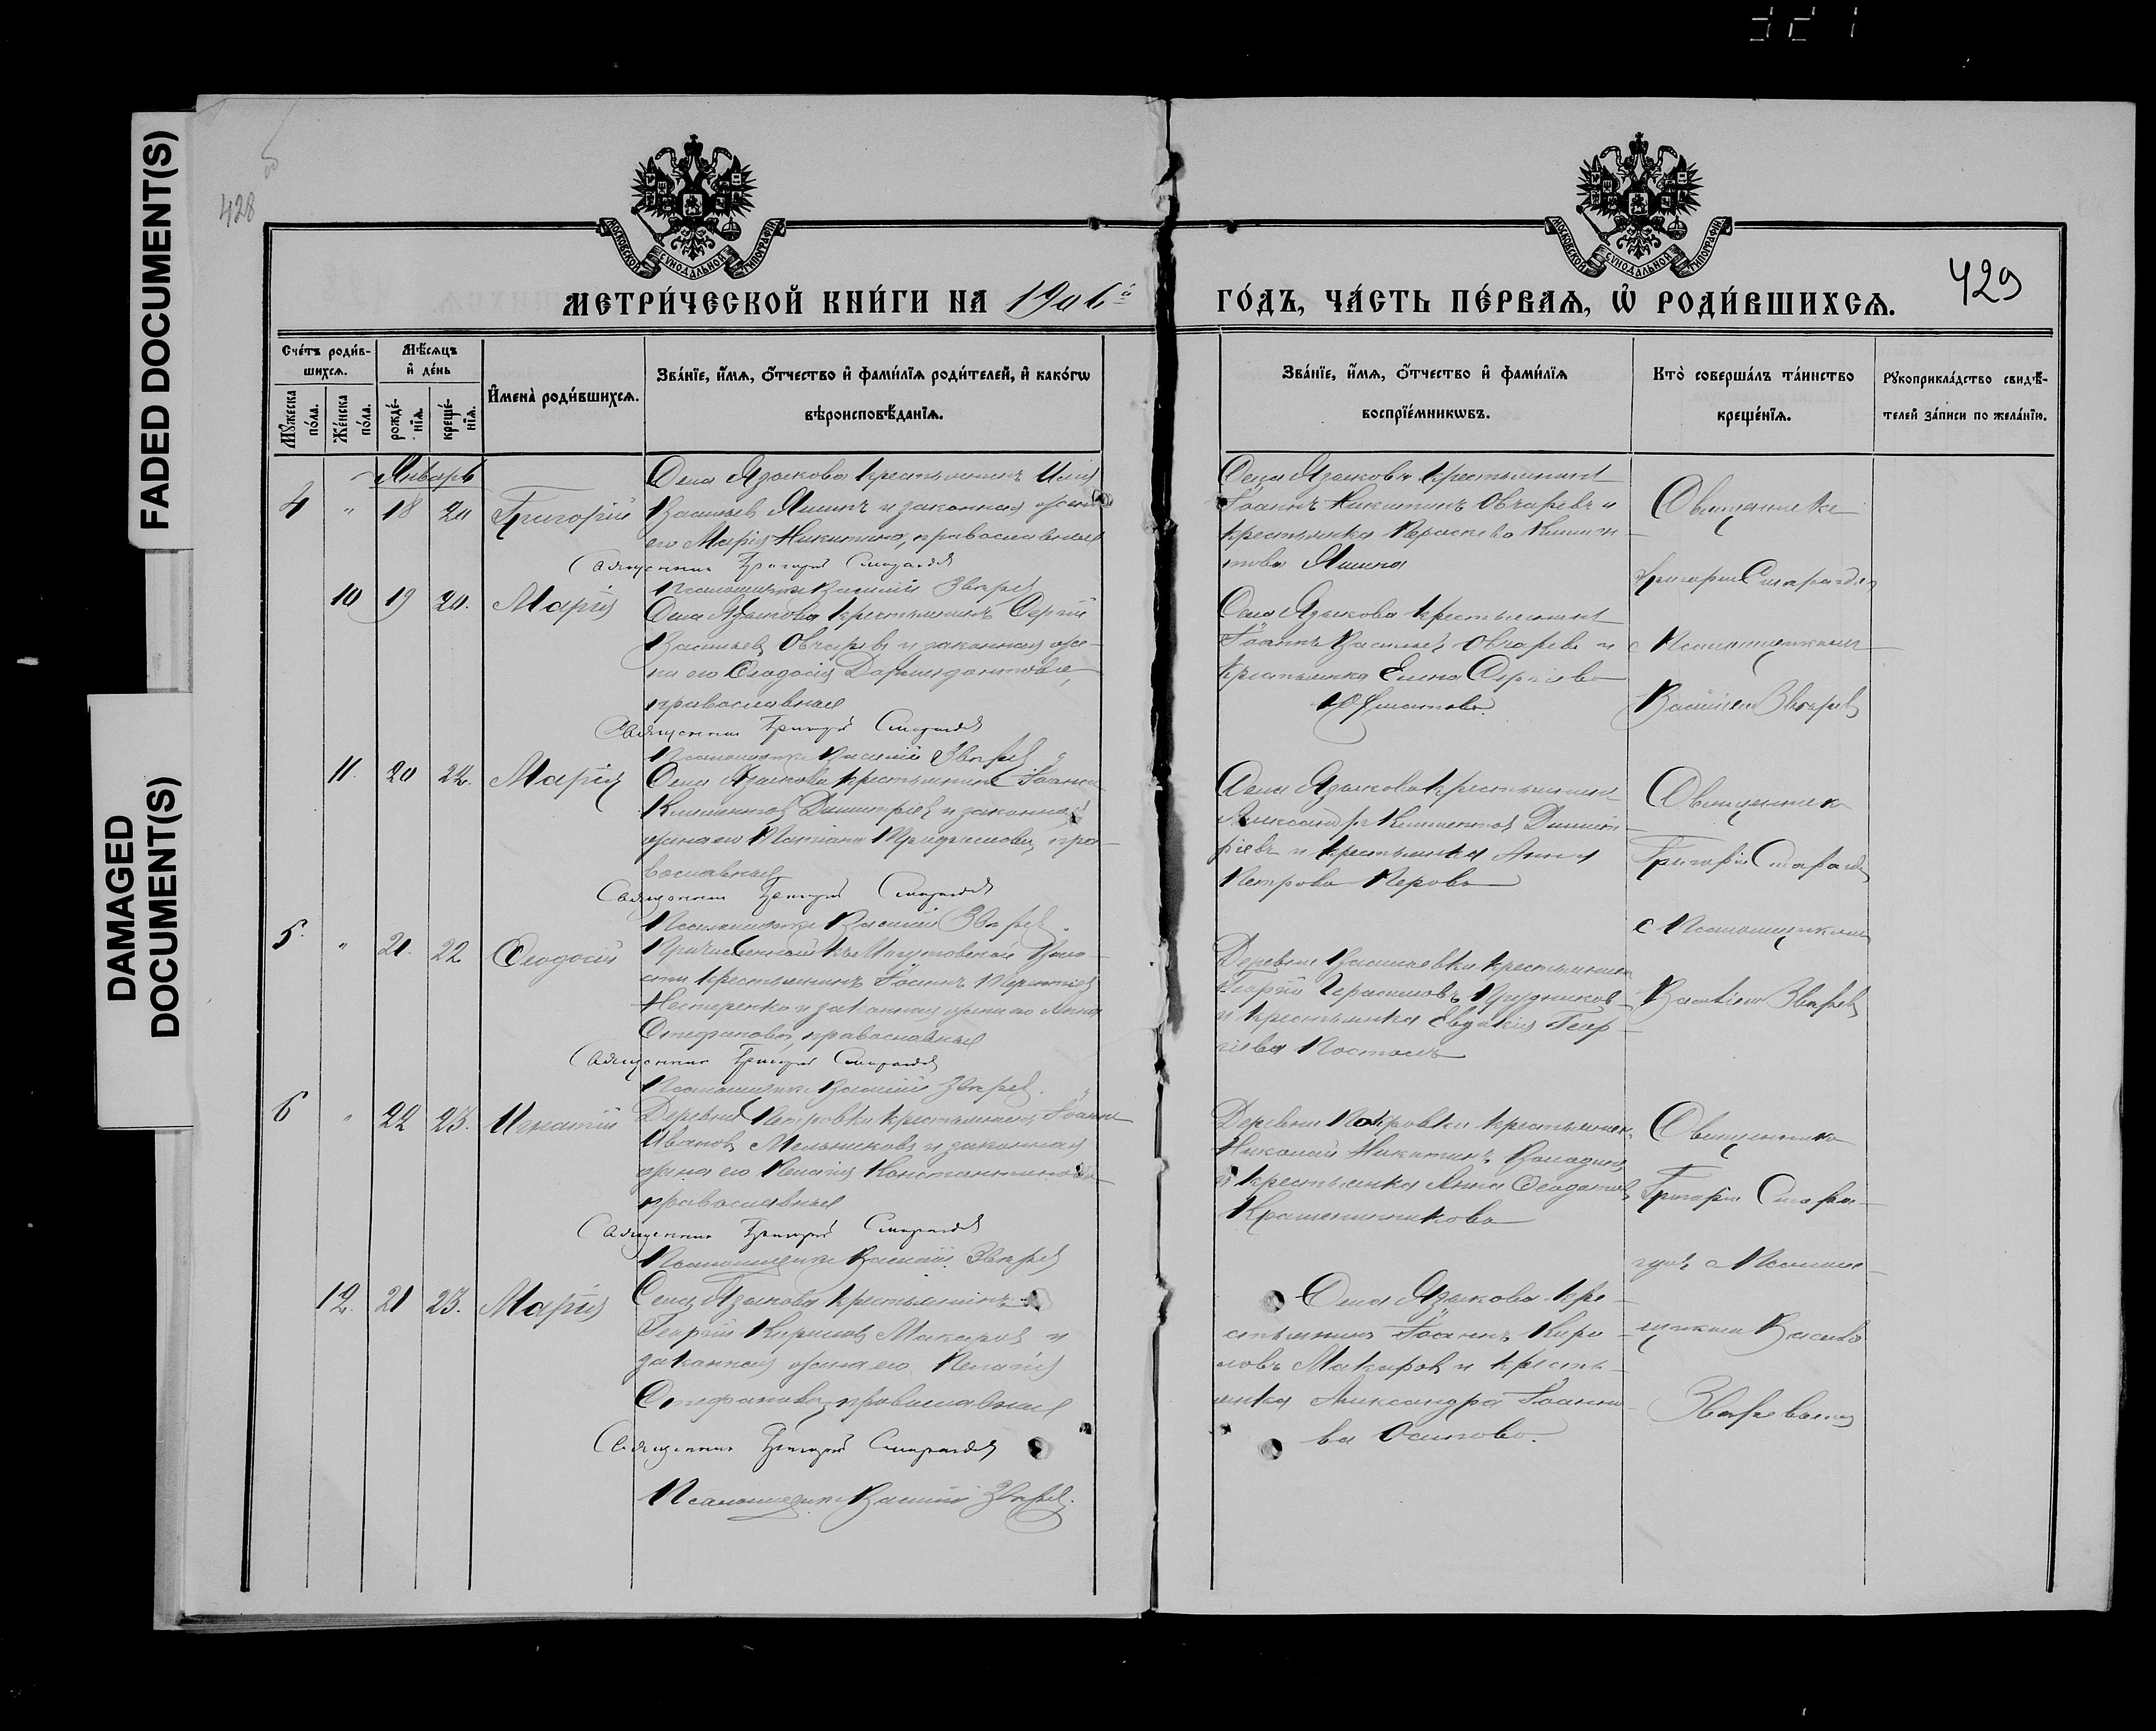 321
FADED DOCUMENT(S)
DAMAGED
DOCUMENT(S)
428
429
МОСКОВСКОЙ СѴНОДАЛЬНОЙ ТИПОГРАФІИ
МОСКОВСКОЙ СѴНОДАЛЬНОЙ ТИПОГРАФІИ
МЕТРИ́ЧЕСКОЙ КНИ́ГИ НА 1906й
ГО́ДЪ, ЧА́СТЬ ПЕ́РВАѦ, Ѡ҆ РОДИ́ВШИХСѦ.
Сче́тъ роди́в-
шихсѧ.
Мѹ́жеска по́ла.
Же́нска по́ла.
Мѣ́сѧцъ
и҆ де́нь
рожде́-
нїѧ.
креще́-
нїѧ.
И҆мена̀ роди́вшихсѧ.
Зва́нїе, и҆́мѧ, ѻ҆́тчество и҆ фами́лїѧ роди́телей, и҆ како́гѡ
вѣроисповѣ́данїѧ.
Зва́нїе, и҆́мѧ, ѻ҆́тчество и҆ фами́лїѧ
воспрїе́мникѡвъ.
Кто̀ соверша́лъ та́инство
креще́нїѧ.
Рѹкоприкла́дство свидѣ́-
телей за́писи по жела́нїю.
Январь
4 " 18 20 Григорій
Села Языкова крестьянинъ
Васильев Яшинъ и законная жена
его Марія Никитина, православные
Священник Григорій Смарагдов
Псаломщик Василій Зверев
Села Языкова крестьянин
Іоаннъ Никитинъ Овчаревъ и
крестьянка Параскева Климен-
това Яшина
Священник
Григорій Смарагдов
с Псаломщиком
Василіем Зверев
10 19 20. Марія
Села Языкова крестьянинъ Сергій
Васильев Овчарев и законная же-
на его Ѳеодосія
православные
Священник Григорій Смарагдов
Псаломщик Василій Зверев
Села Языкова крестьянин
Іоаннъ Васильев Овчарев и
крестьянка Елена Сергіева
11. 20 22. Марія
Села Языкова крестьянин Іоанн
Климентов Димитріев и законная
жена его Татіана пра-
вославные
Священник Григорій Смарагдов
Псаломщик Василій Зверев
Села Языкова крестьянин
Александр Климентов Димит-
ріевъ и крестьянка Анна
Петрова Перова
Священник
Григорій Смарагдов
с Псаломщиком
Василіем Зверев
5. " 21. 22 Ѳеодосій
Причисленный къ Воло-
сти крестьянинъ Іоаннъ Терентіев
Нестеренко и законная жена его Анна
Стефанова, православные
Священник Григорій Смарагдов
Псаломщик Василій Зверев.
Деревни Васильевки крестьянин
Георгій Герасимовъ Прудников
и крестьянка Евдокія Геор-
гіева
6 " 22 23. Игнатій
Деревни Петровки крестьянин Іоанн
Иванов Мельников и законная
жена его Пелагія Константинова
православные
Священник Григорій Смарагдов
Псаломщик Василій Зверев
Деревни Петровки крестьянин
Николай Никитинъ Володин
и крестьянка Анна Ѳеодотова
Крашенинникова
Священник
Григорій Смара-
гдов с Псалом-
щиком Василіе
Зверевым
12. 21 23. Марія
Села Языкова крестьянинъ
Георгій Кирилов Макаров и
законная жена его Пелагія
Стефанова, православные
Священник Григорій Смарагдов
Псаломщик Василій Зверев.
Села Языкова кре-
стьянинъ Іоаннъ Кири-
ловъ Макаров и кресть-
янка Александра Іоанно-
ва Осипова.